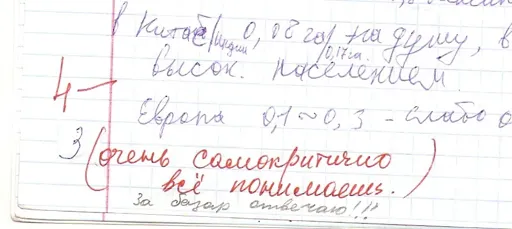 в Китае/Индии 0,08 га на душу, в
0,17 га.
высок. населением.
4 –
Европа 0,1 ~ 0,3 – слабо
3 (очень самокритично
всё понимаешь.)
За базар отвечаю!!!